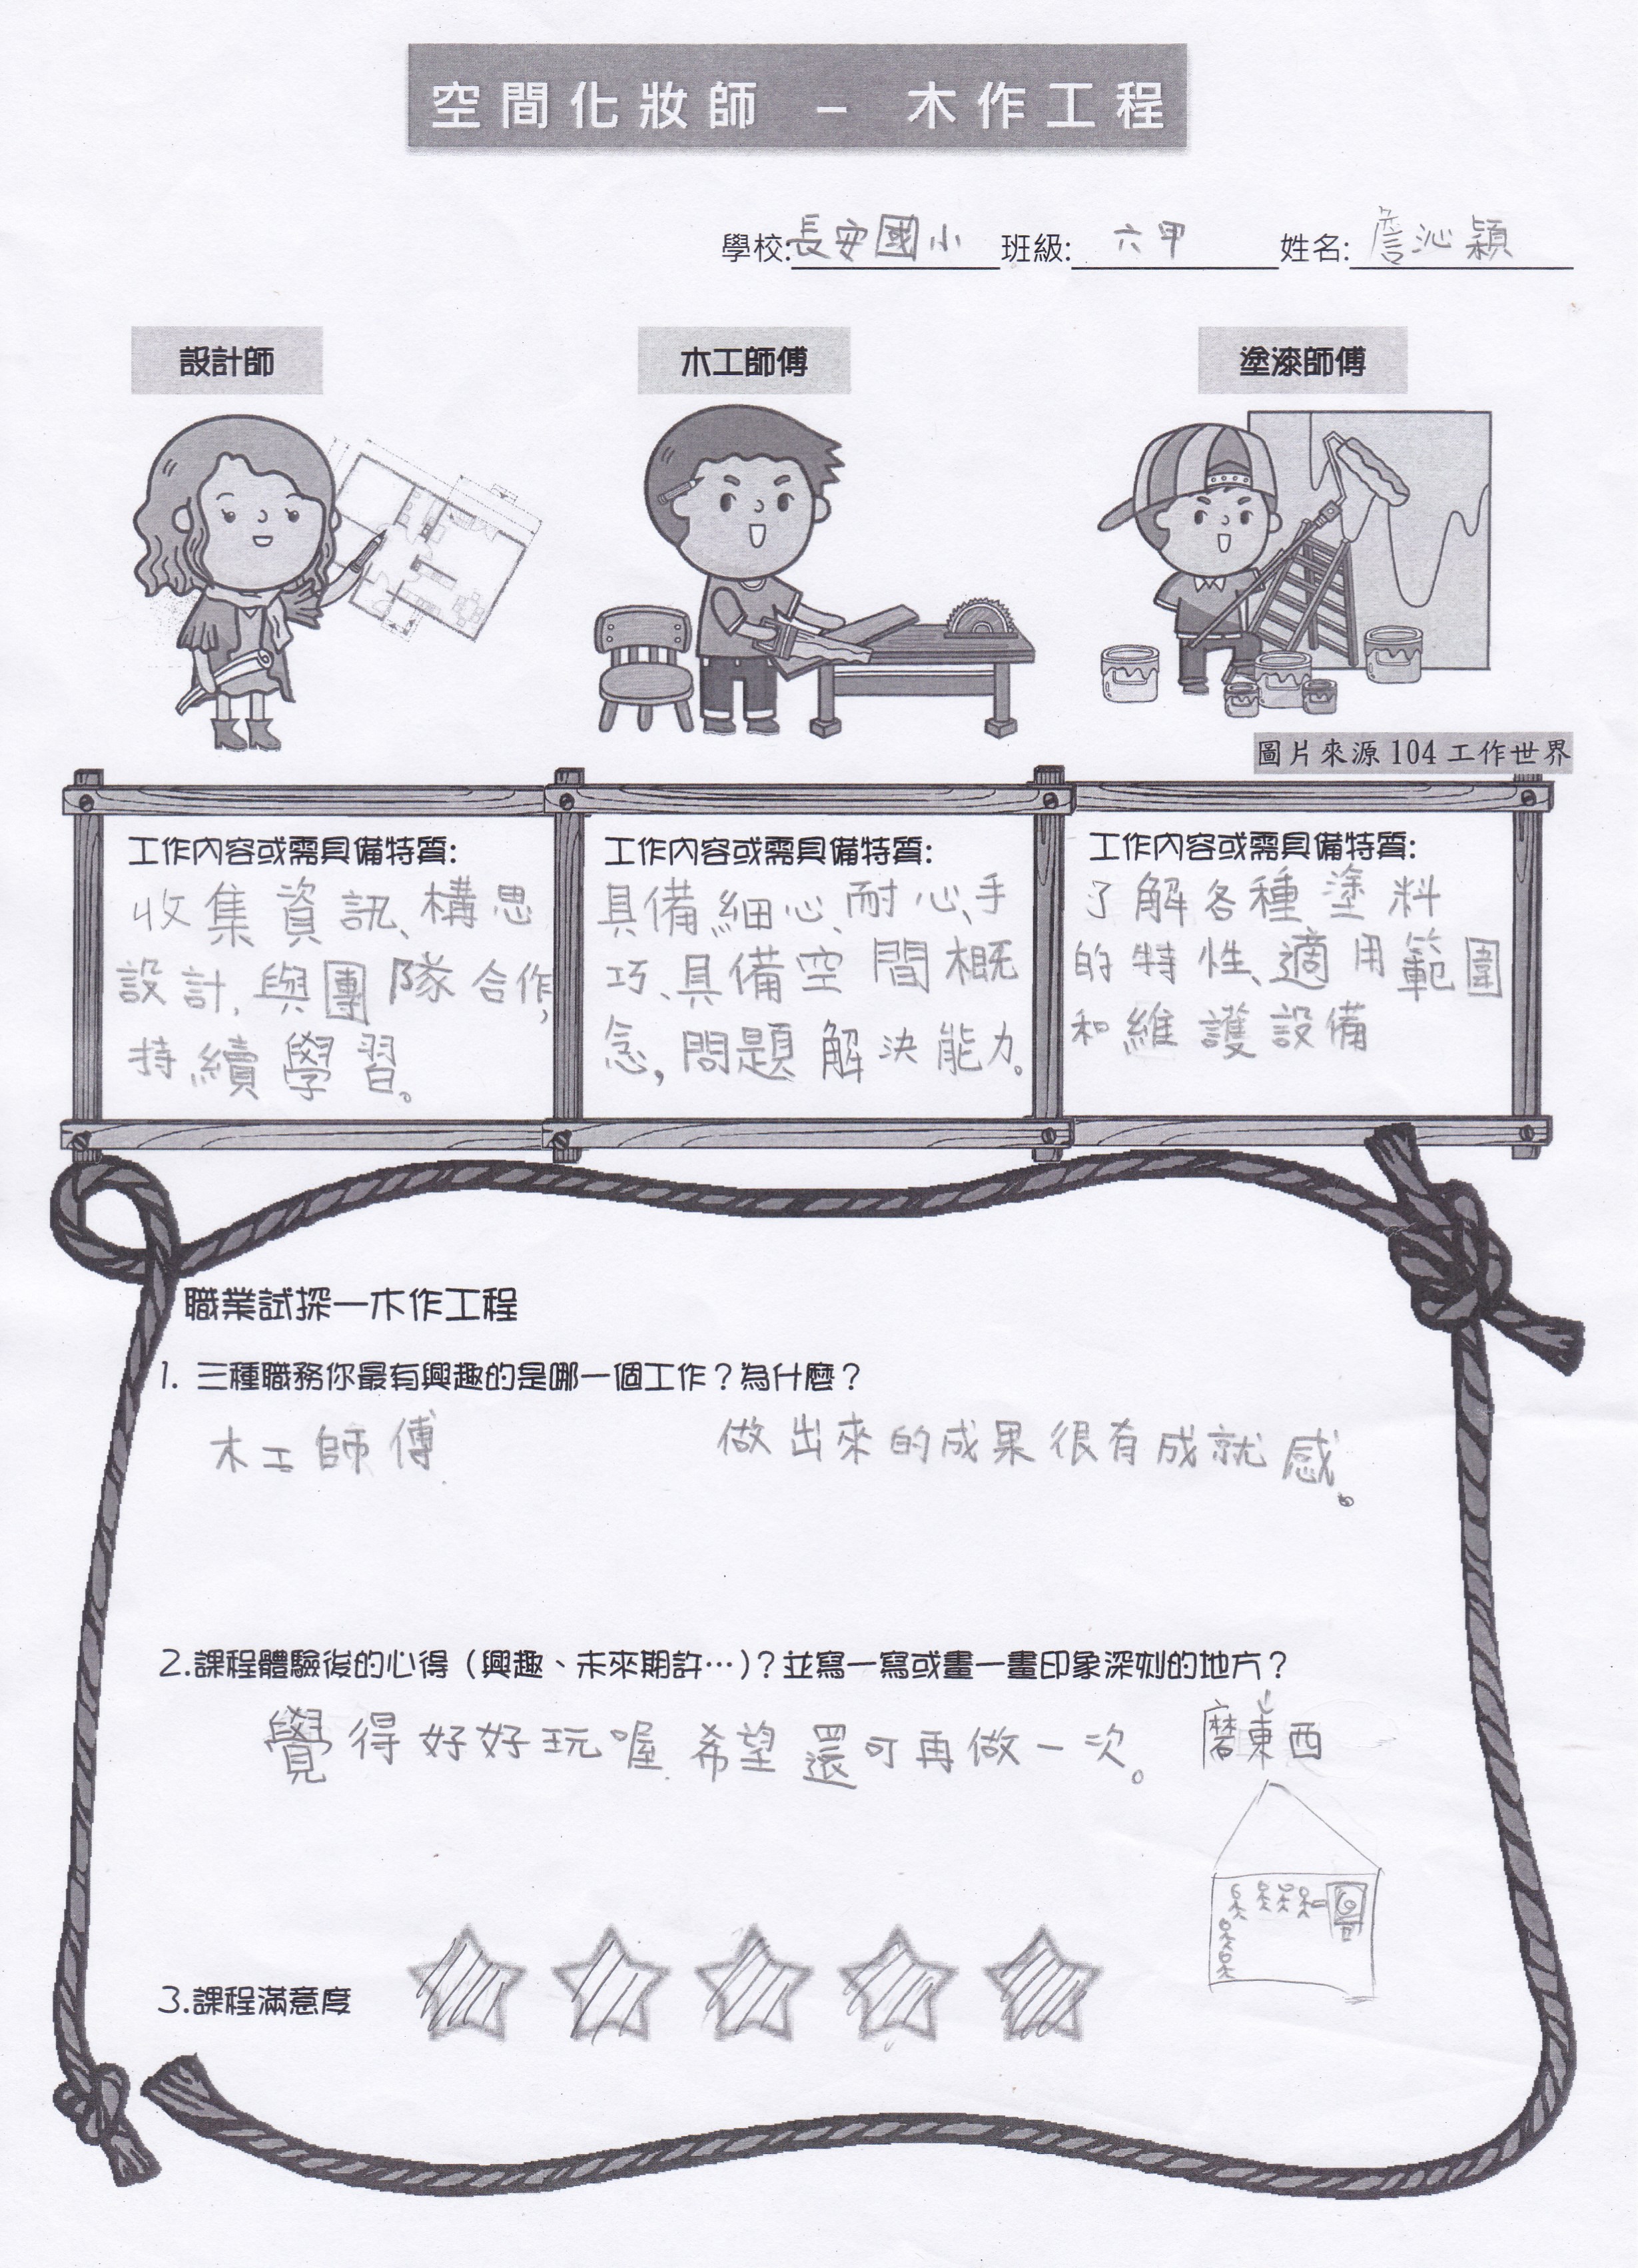 空間化妝師 – 木作工程
學校:長安國小 班級:六甲 姓名:詹沁穎
設計師
木工師傅
塗漆師傅
圖片來源 104 工作世界
工作內容或需具備特質:
收集資訊、構思
設計,與團隊合作,
持續學習。
工作內容或需具備特質:
具備細心、耐心、手
巧、具備空間概
念,問題解決能力。
工作內容或需具備特質:
了解各種塗料
的特性、適用範圍
和維護設備
職業試探—木作工程
1. 三種職務你最有興趣的是哪一個工作?為什麼?
木工師傅 做出來的成果很有成就感。
2.課程體驗後的心得(興趣、未來期許…)?並寫一寫或畫一畫印象深刻的地方?
覺得好好玩喔.希望還可再做一次。 磨東西
3.課程滿意度